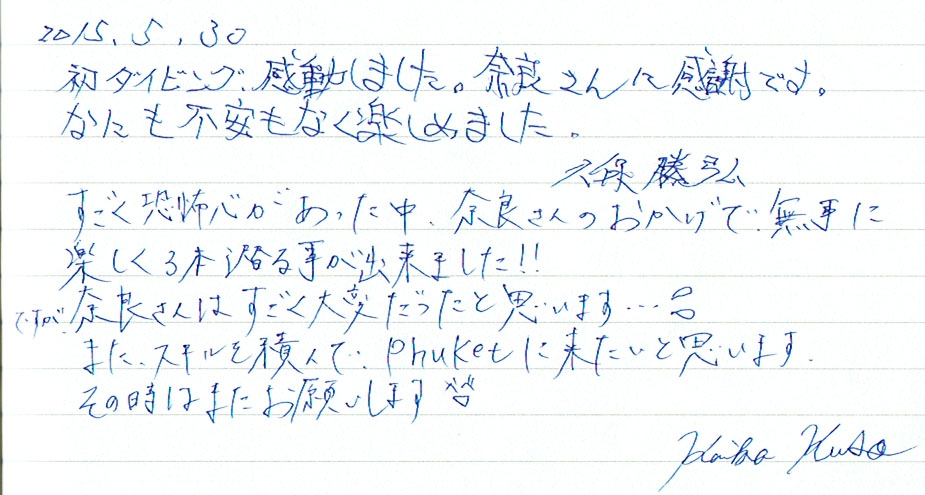 2015.5.30
初ダイビング、感動しました。奈良さんに感謝です。
なにも不安もなく楽しめました。
勝弘
すごく恐怖心があった中、奈良さんのおかげで無事に
楽しく3本潜る事が出来ました!!
ですが、奈良さんはすごく大変だったと思います…
また、スキルを積んで、Phuketに来たいと思います.
その時はまたお願いします
Kubo